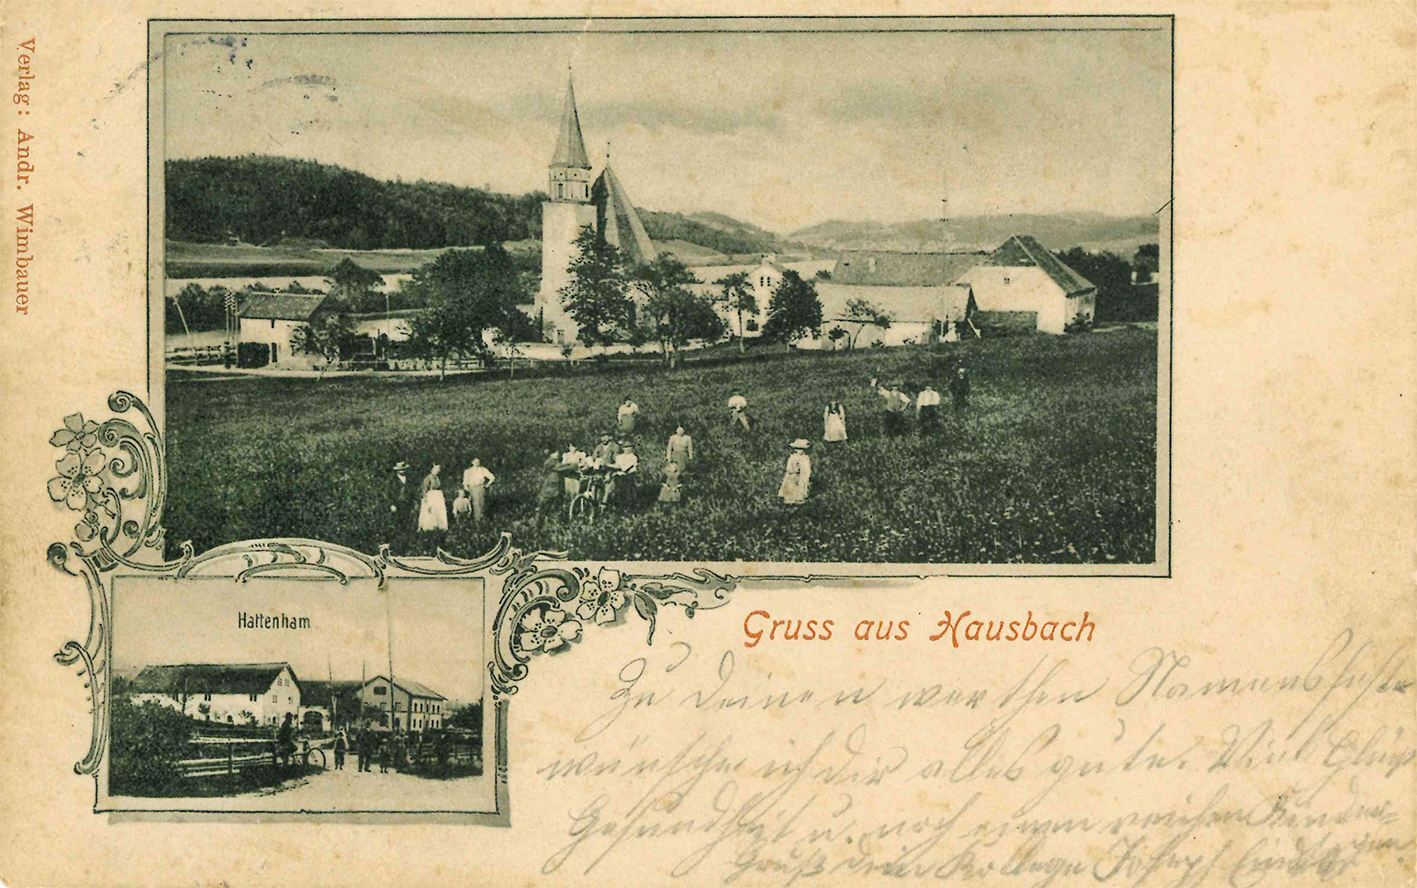 Verlag: Andr. Wimbauer
Hattenham
Gruss aus Hausbach
Zu Deinen werthen Namensfeste
wünsche ich dir alles gute. Viel Glück
Gesundheit u. noch einen reichen
Gruß dein Kollege Joseph